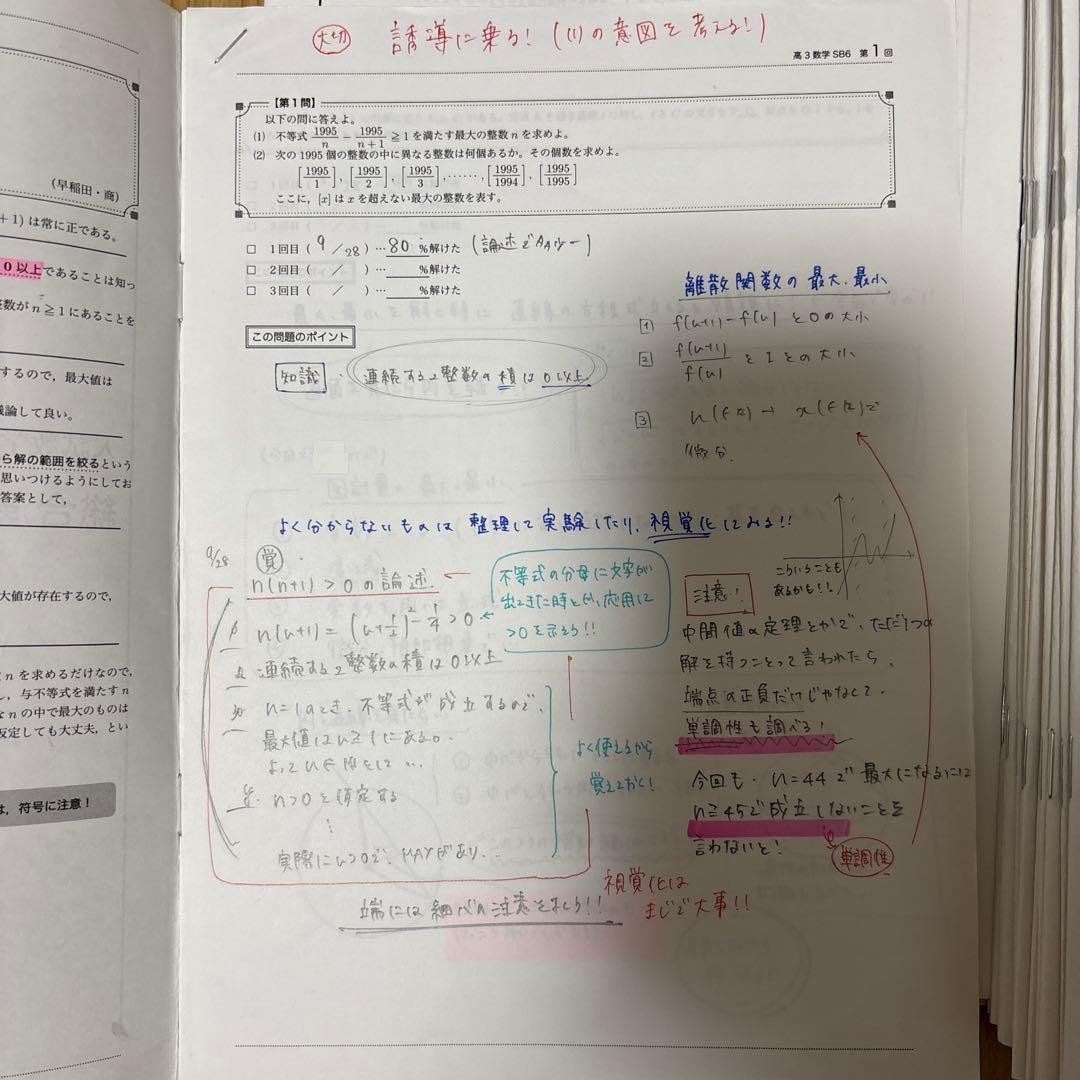 大切 誘導に乗る! ((1)の意図を考える!)
高3数学 SB6 第1回
【第1問】
以下の問に答えよ。
(1) 不等式 1995/n − 1995/(n+1) ≧ 1 を満たす最大の整数 n を求めよ。
(2) 次の 1995 個の整数の中に異なる整数は何個あるか。その個数を求めよ。
[1995/1], [1995/2], [1995/3], ……, [1995/1994], [1995/1995]
ここに, [x] は x を超えない最大の整数を表す。
□ 1回目 ( 9/28 ) … 80 %解けた
□ 2回目 ( / ) … %解けた
□ 3回目 ( / ) … %解けた
この問題のポイント
知識 ・連続する2整数の積は0以上
離散関数の最大、最小
1 f(n+1)−f(n) と0の大小
2 f(n+1)/f(n) と1との大小
3 n(∈Z) → x(∈R)で
微分.
よく分からないものは整理して実験したり、視覚化してみる!!
9/28
覚
n(n+1)>0の論述
n(n+1)=(n+1/2)²−1/4>0
連続する2整数の積は0以上
n=1のとき、不等式が成立するので、
最大値はn≧1にある。
よってn∈Nとして…
n>0と仮定する
⋮
実際にn>0で、MAXがあり…
不等式の分母に文字が
出てきた時とか、応用して
>0を示そう!!
よく使えるから
覚えておく!
端には細心の注意を払う!!
視覚化は
まじで大事!!
こういうことも
あるかも!!
注意!
中間値の定理とかで、ただ1つの
解を持つことって言われたら、
端点の正負だけじゃなくて、
単調性も調べる!
今回も、n=44で最大になるには
n≧45で成立しないことを
言わないと!
単調性
(早稲田・商)
+1) は常に正である。
0以上であることは知っ
整数が n≧1 にあることを
するので, 最大値は
議論して良い。
ら解の範囲を絞るという
思いつけるようにしてお
答案として,
大値が存在するので,
n を求めるだけなので,
し, 与不等式を満たす n
な n の中で最大のものは
仮定しても大丈夫, とい
は, 符号に注意!